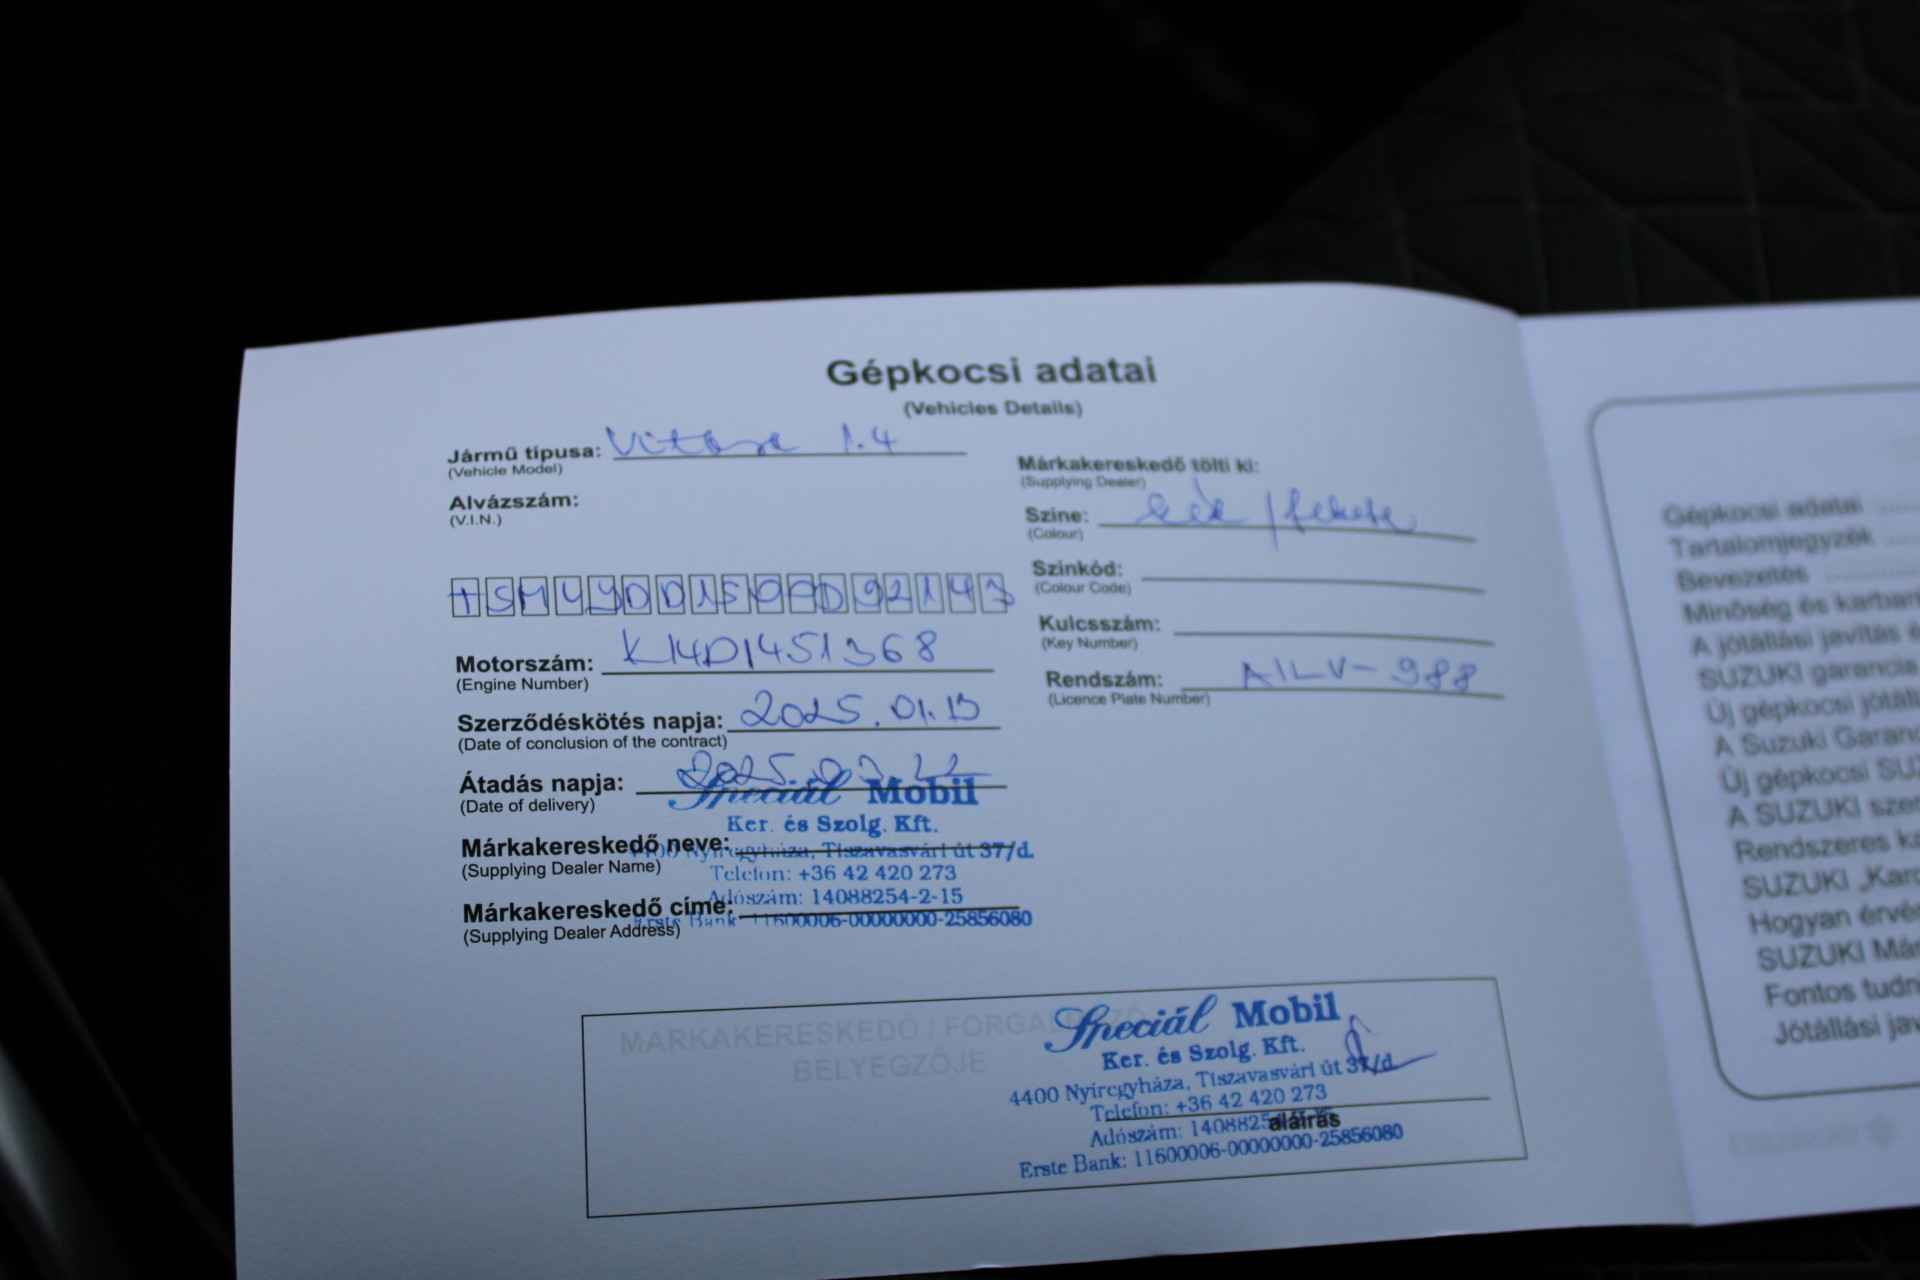 Gépkocsi adatai
(Vehicles Details)
Jármű típusa: Vitara 1.4
(Vehicle Model)
Alvázszám:
(V.I.N.)
Motorszám: K14D1451368
(Engine Number)
Szerződéskötés napja: 2025.01.13
(Date of conclusion of the contract)
Átadás napja: 2025.03.22
(Date of delivery)
Márkakereskedő neve:
(Supplying Dealer Name)
Márkakereskedő címe:
(Supplying Dealer Address)
Speciál Mobil
Ker. és Szolg. Kft.
4400 Nyíregyháza, Tiszavasvári út 37/d.
Telefon: +36 42 420 273
Adószám: 14088254-2-15
Erste Bank: 11600006-00000000-25856080
Márkakereskedő tölti ki:
(Supplying Dealer)
Színe: kék / fekete
(Colour)
Színkód:
(Colour Code)
Kulcsszám:
(Key Number)
Rendszám: AILV-988
(Licence Plate Number)
MÁRKAKERESKEDŐ / FORGALMAZÓ
BELYEGZŐJE
Speciál Mobil
Ker. és Szolg. Kft.
4400 Nyíregyháza, Tiszavasvári út 37/d.
Telefon: +36 42 420 273
aláírás
Adószám: 1408825
Erste Bank: 11600006-00000000-25856080
Gépkocsi adatai
Tartalomjegyzék
Bevezetés
Minőség és karban
A jótállási javítás é
SUZUKI garancia
Új gépkocsi jótáll
A Suzuki Garanc
Új gépkocsi SUZ
A SUZUKI szer
Rendszeres ka
SUZUKI „Karo
Hogyan érvén
SUZUKI Már
Fontos tudn
Jótállási jav